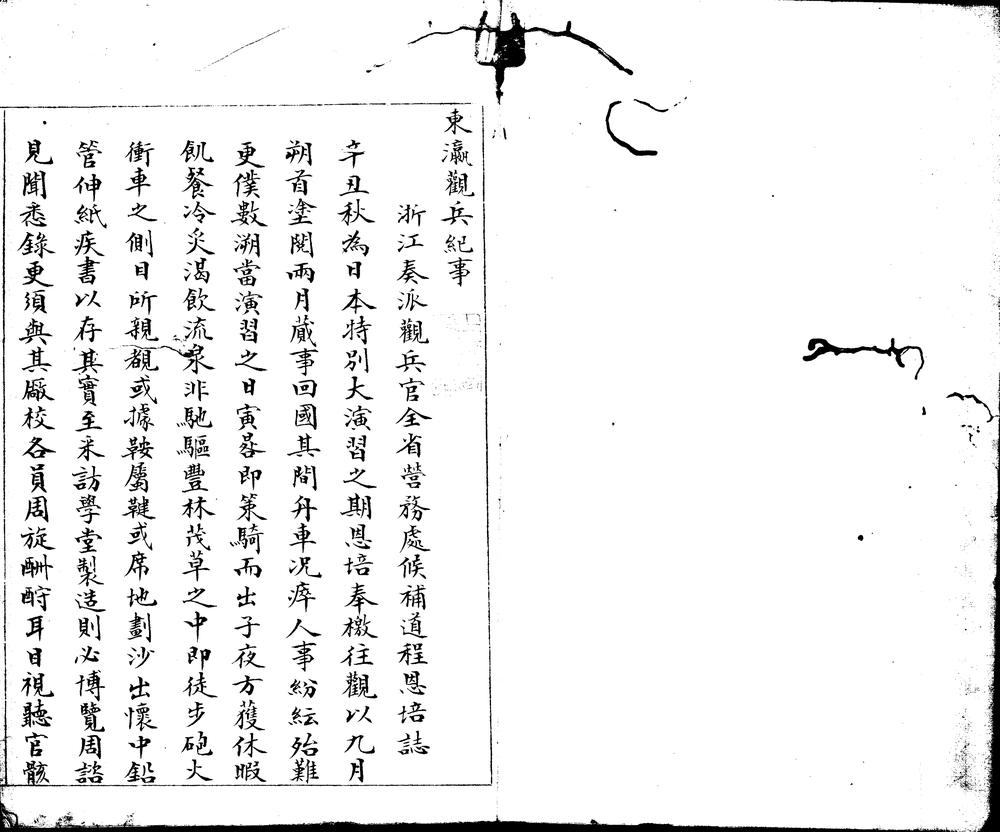 東瀛觀兵紀事
浙江奏派觀兵官全省營務處候補道程恩培誌
辛丑秋為日本特別大演習之期恩培奉檄往觀以九月
朔首塗閱兩月蕆事回國其間舟車况瘁人事紛紜殆難
更僕數溯當演習之日寅晷即策騎而出子夜方獲休暇
飢餐冷炙渴飲流泉非馳驅豐林茂草之中即徒步砲火
衝車之側目所親覩或據鞍屬鞬或席地劃沙出懷中鉛
管伸紙疾書以存其實至釆訪學堂製造則必博覽周諮
見聞悉錄更須與其廠校各員周旋酬酢耳目視聽官骸